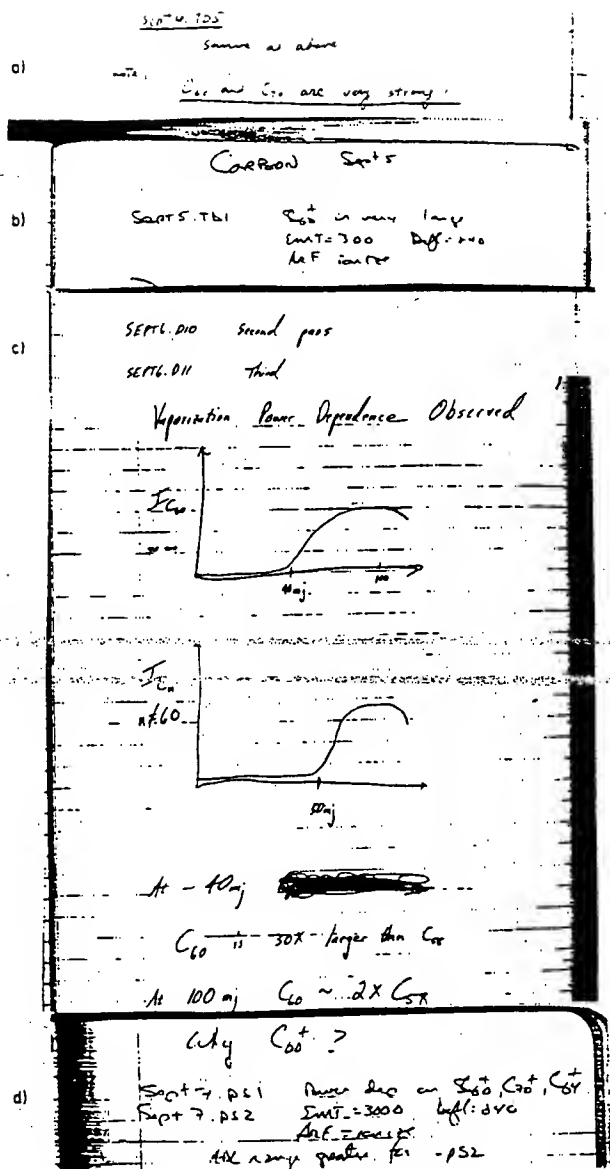 a)
Sept 4. TD5
Same as above
note:
C60 and C70 are very strong!
b)
CARBON Sept 5
Sept 5. TD1 C60+ is very large
EMT=300 Defl=240
ArF ionize
c)
SEPT6.D10 Second pass
SEPT6.D11 Third
Vaporization Power Dependence Observed
IC60
40mj. 100
ICn
n≠60
50mj
At ~40mj
C60 is 30X larger than C58
At 100mj C60 ~ 2X C58
d)
Why C60+ ?
Sept 7. ps1 Power dep on C60+, C70+, C64+
Sept 7. ps2 EMT=3000 Defl: 240
ArF =
ADC range greater for -ps2